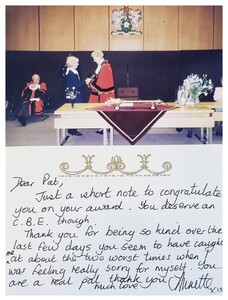 Dear Pat,
Just a short note to congratulate
you on your award. You deserve an
C.B.E. though.
Thank you for being so kind over the
last few days you seem to have caught
me at about the two worst times when I
was feeling really sorry for myself. You
are a real pal thank you
much love Annette